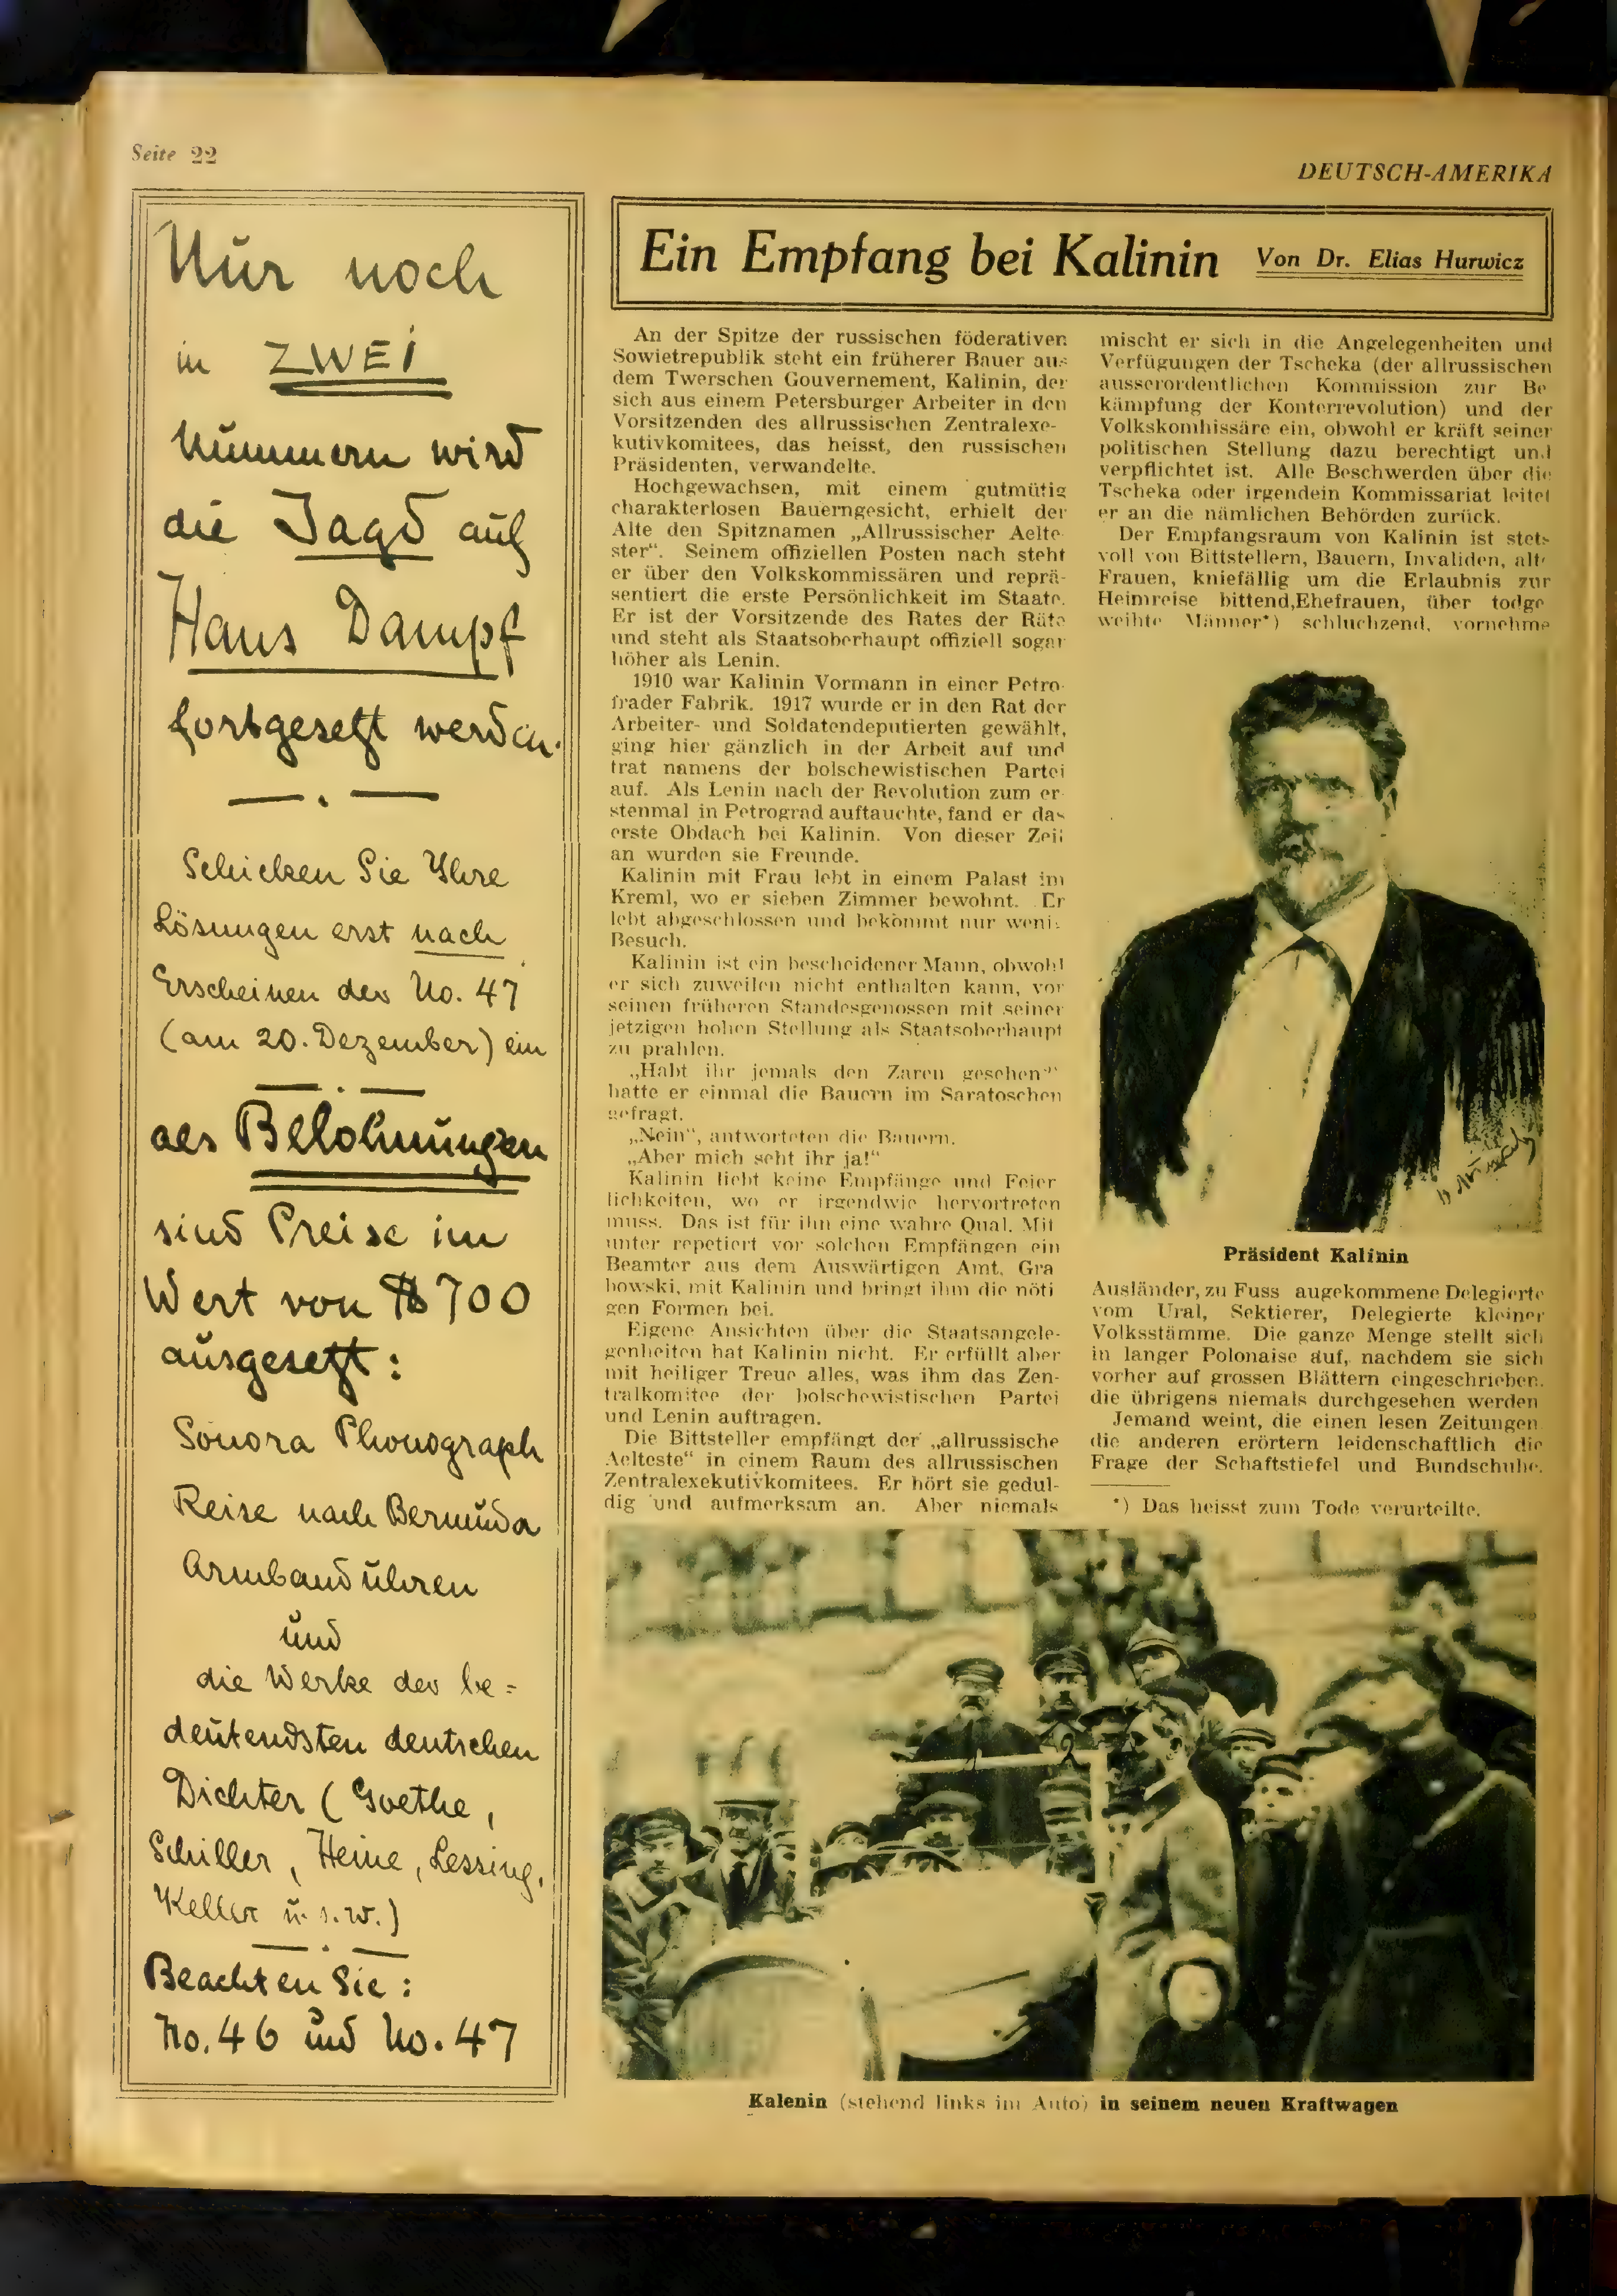 Seite 22
DEUTSCH-AMERIKA
Nur noch
in ZWEI
Nummern wird
die Jagd auf
Hans Dampf
fortgesetzt werden.
Schicken Sie Ihre
Lösungen erst nach
Erscheinen der No. 47
(am 20. Dezember) ein
als Belohnungen
sind Preise im
Wert von $700
ausgesetzt:
Sonora Phonograph
Reise nach Bermuda
Armbanduhren
und
die Werke der be=
deutendsten deutschen
Dichter (Goethe,
Schiller, Heine, Lessing,
Keller u.s.w.)
Beachten Sie:
No. 46 und No. 47
Ein Empfang bei Kalinin Von Dr. Elias Hurwicz
An der Spitze der russischen föderativen
Sowietrepublik steht ein früherer Bauer aus
dem Twerschen Gouvernement, Kalinin, der
sich aus einem Petersburger Arbeiter in den
Vorsitzenden des allrussischen Zentralexe-
kutivkomitees, das heisst, den russischen
Präsidenten, verwandelte.
Hochgewachsen, mit einem gutmütig
charakterlosen Bauerngesicht, erhielt der
Alte den Spitznamen „Allrussischer Aelte-
ster“. Seinem offiziellen Posten nach steht
er über den Volkskommissären und reprä-
sentiert die erste Persönlichkeit im Staate.
Er ist der Vorsitzende des Rates der Räte
und steht als Staatsoberhaupt offiziell sogar
höher als Lenin.
1910 war Kalinin Vormann in einer Petro-
frader Fabrik. 1917 wurde er in den Rat der
Arbeiter- und Soldatendeputierten gewählt,
ging hier gänzlich in der Arbeit auf und
trat namens der bolschewistischen Partei
auf. Als Lenin nach der Revolution zum er-
stenmal in Petrograd auftauchte, fand er das
erste Obdach bei Kalinin. Von dieser Zeit
an wurden sie Freunde.
Kalinin mit Frau lebt in einem Palast im
Kreml, wo er sieben Zimmer bewohnt. Er
lebt abgeschlossen und bekommt nur wenig
Besuch.
Kalinin ist ein bescheidener Mann, obwohl
er sich zuweilen nicht enthalten kann, vor
seinen früheren Standesgenossen mit seiner
jetzigen hohen Stellung als Staatsoberhaupt
zu prahlen.
„Habt ihr jemals den Zaren gesehen?“
hatte er einmal die Bauern im Saratoschen
gefragt.
„Nein“, antworteten die Bauern.
„Aber mich seht ihr ja!“
Kalinin liebt keine Empfänge und Feier
lichkeiten, wo er irgendwie hervortreten
muss. Das ist für ihn eine wahre Qual. Mit
unter repetiert vor solchen Empfängen ein
Beamter aus dem Auswärtigen Amt, Gra
bowski, mit Kalinin und bringt ihm die nöti
gen Formen bei.
Eigene Ansichten über die Staatsangele-
genheiten hat Kalinin nicht. Er erfüllt aber
mit heiliger Treue alles, was ihm das Zen-
tralkomitee der bolschewistischen Partei
und Lenin auftragen.
Die Bittsteller empfängt der „allrussische
Aelteste“ in einem Raum des allrussischen
Zentralexekutivkomitees. Er hört sie gedul-
dig und aufmerksam an. Aber niemals
mischt er sich in die Angelegenheiten und
Verfügungen der Tscheka (der allrussischen
ausserordentlichen Kommission zur Be
kämpfung der Konterrevolution) und der
Volkskommissäre ein, obwohl er kraft seiner
politischen Stellung dazu berechtigt und
verpflichtet ist. Alle Beschwerden über die
Tscheka oder irgendein Kommissariat leitet
er an die nämlichen Behörden zurück.
Der Empfangsraum von Kalinin ist stets
voll von Bittstellern, Bauern, Invaliden, alte
Frauen, kniefällig um die Erlaubnis zur
Heimreise bittend,Ehefrauen, über todge
weihte Männer*) schluchzend, vornehme
Präsident Kalinin
Ausländer, zu Fuss angekommene Delegierte
vom Ural, Sektierer, Delegierte kleiner
Volksstämme. Die ganze Menge stellt sich
in langer Polonaise auf, nachdem sie sich
vorher auf grossen Blättern eingeschrieben,
die übrigens niemals durchgesehen werden
Jemand weint, die einen lesen Zeitungen
die anderen erörtern leidenschaftlich die
Frage der Schaftstiefel und Bundschuhe.
*) Das heisst zum Tode verurteilte.
1 2
Kalenin (stehend links im Auto) in seinem neuen Kraftwagen